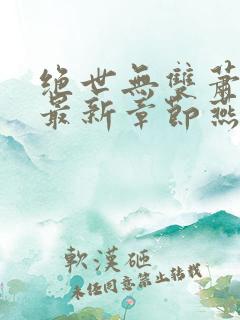 絕世無雙蕭
最新章節燕
軟漢砸
未经同意禁止转载